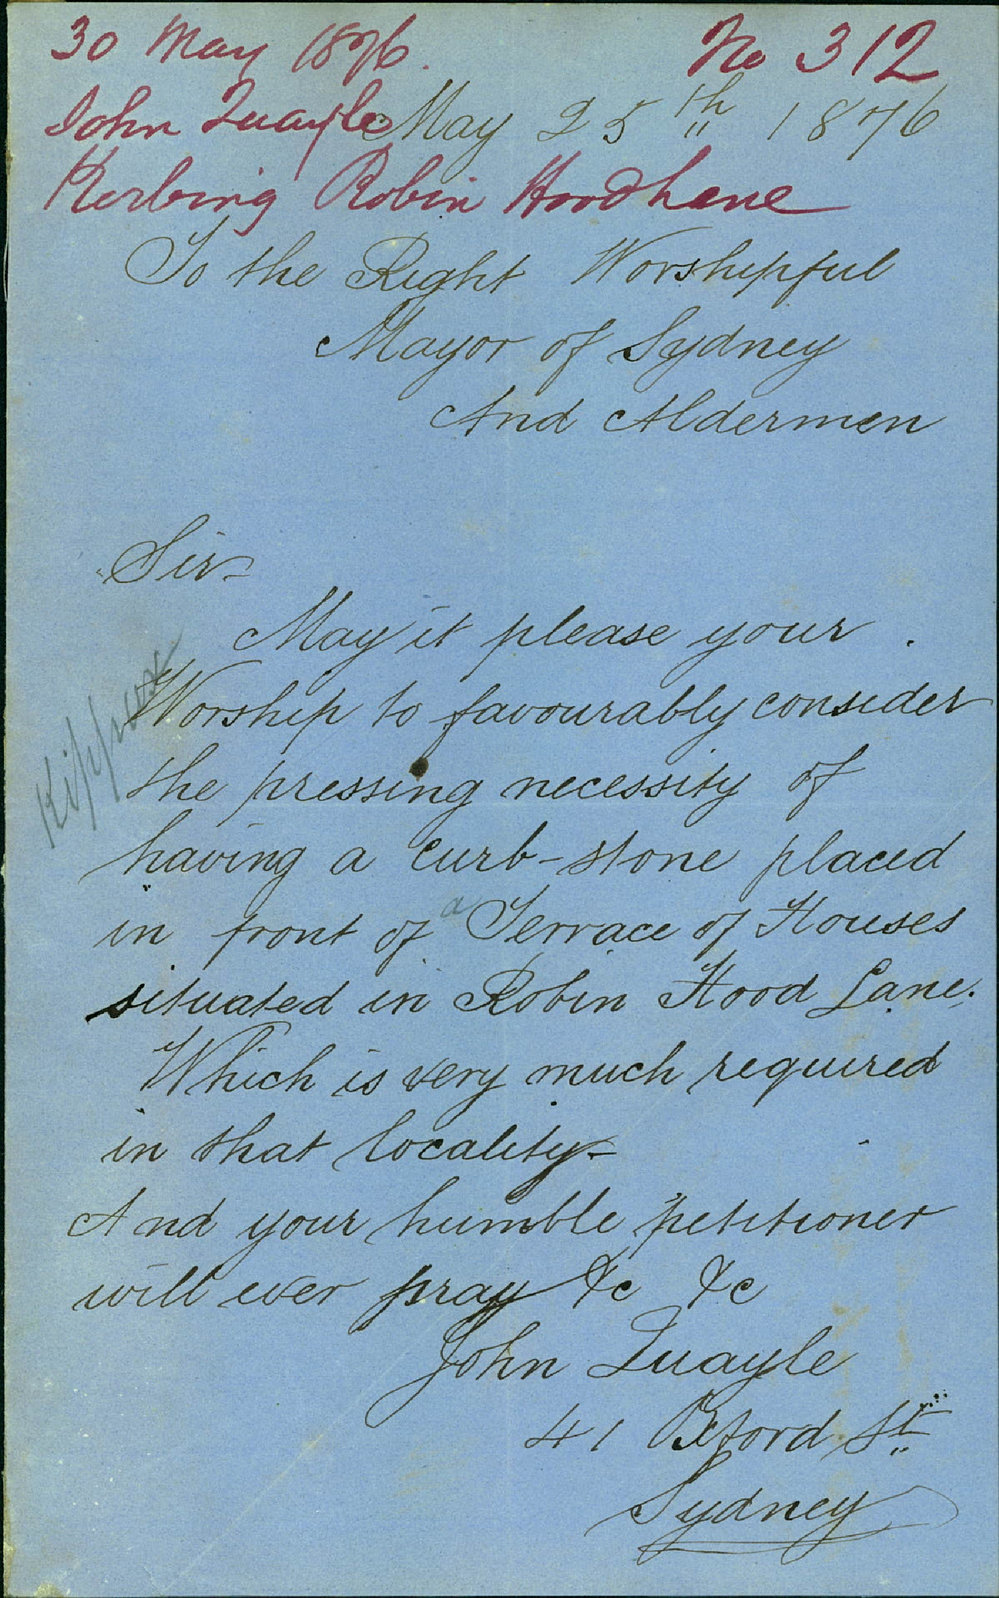 30 May 1876. No 312
John Quayle May 25th 1876
Kerbing Robin Hood Lane
To the Right Worshipful
Mayor of Sydney
And Aldermen
Sir
May it please your
Worship to favourably consider
the pressing necessity of
having a curb-stone placed
in front of a Terrace of Houses
situated in Robin Hood Lane.
Which is very much required
in that locality
And your humble petitioner
will ever pray &c &c
John Quayle
41 Oxford St
Sydney